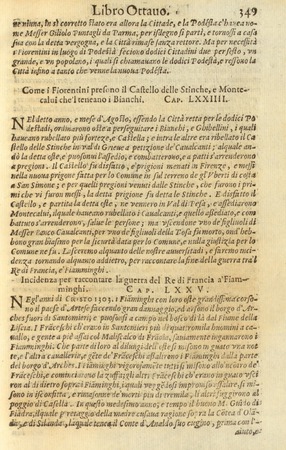 Libro Ottauo. 349
neniuna, In sì corretto stato era allora la Cittade, e la Podesta c'hauea no-
me Messer Giliolo Puntagli da Parma, per isdegno si partì, e tornossi a casa
sua con la detta vergogna, e la Città rimase sanza rettore. Ma per necessità
i Fiorentini in luogo di Podestà feciono dodici Cittadini due per sesto, vn
grande, e vno popolano, i quali si chiamauano le dodici Podestà, e ressono la
Città insino a tanto che venne la nuoua Podestà.
Come i Fiorentini presono il Castello delle Stinche, e Monte-
calui che'l tenano i Bianchi. CAP. LXXIIII.
NEl detto anno, e mese d'Agosto, essendo la Città retta per le dodici Po-
destadi, ordinarono oste a perseguitare i Bianchi, e Ghibellini, i quali
haueano rubellato più fortezze, e Castella; e intra le altre era ribellato il Ca-
stello delle Stinche in val di Grieue a petizione de' Caualcanti; alle qua' an-
dò la detta oste, e puosonui l'assedio, e combatterono, e a patti s'arrenderono
a pregioni. Il Castello fu disfatto, e i prigioni menati in Firenze, e messi
nella nuoua prigione fatta per lo Comune in su'l terreno degl'Vberti di costa
a San Simone; e per quelli pregioni venuti dalle Stinche, che furono i pri-
mi che vi furon messi, la detta prigione fu detta le Stinche. E disfatto il
Castello, e partita la detta oste, ne venirono in Val di Pesa, e assediarono
Montecalui, il quale haueano rubellato i Caualcanti, e quello assediato, e com-
battuto s'arrenderono, salue le persone; ma vscendone vno de' figliuoli di
Messer Banco Caualcanti, per vno de' figliuoli della Tosa fu morto, onde heb-
bono gran biasimo per la sicurtà data per lo Comune, e nulla giustizia per lo
Comune ne fu. Lasceremo alquanto delle nostre auuersitadi, e faremo inci-
denza tornando alquanto addietro, per raccontare la fine della guerra tra'l
Re di Francia, e i Fiamminghi.
Incidenza per raccontare la guerra del Re di Francia a'Fiam-
minghi. CAP. LXXV.
NEgl'anni di CHRISTO 1303. i Fiaminghi con loro oste grandissima corso-
no il paese d'Artese faccendo gran danno; e arsono il borgo d'Ar-
ches fuori di Santomieri; e puosonsi a campo nel bosco di là dal fiume della
Liscia. I Frãceschi ch'erano in Santomieri più di quattromila huomini a ca-
uallo, e gente a piè assai col Maliscalco di Francia, sauiamente ingannarono i
Fiaminghi. Che parte di loro al dilungi dell'oste si misono in guato tra not-
te, e l'altra caualleria, e gẽte de' Frãceschi assalirono i Fiaminghi dalla parte
del borgo d'Arches. I Fiaminghi vigorosamente vennono incontro de'
Frãceschi, e cominciata la zuffa gli altri Frãceschi ch'erano in guato percos-
sono al di dietro sopra i Fiaminghi, i quali veggẽdosi improuiso assalire, si mi-
sono in isconfitta, e rimasonne de morti più di tremila, gli altri fuggirono al
poggio di Casella. In questo medesimo anno; e tempo il buono M. Guido di
Fiãdra, il quale p retaggio della madre cusaua ragione sopra la Cõtea d'Olã-
da, e di Silanda, la quale tenea il Conte d'Analdo suo cugino, grana con l'
aiuto, e